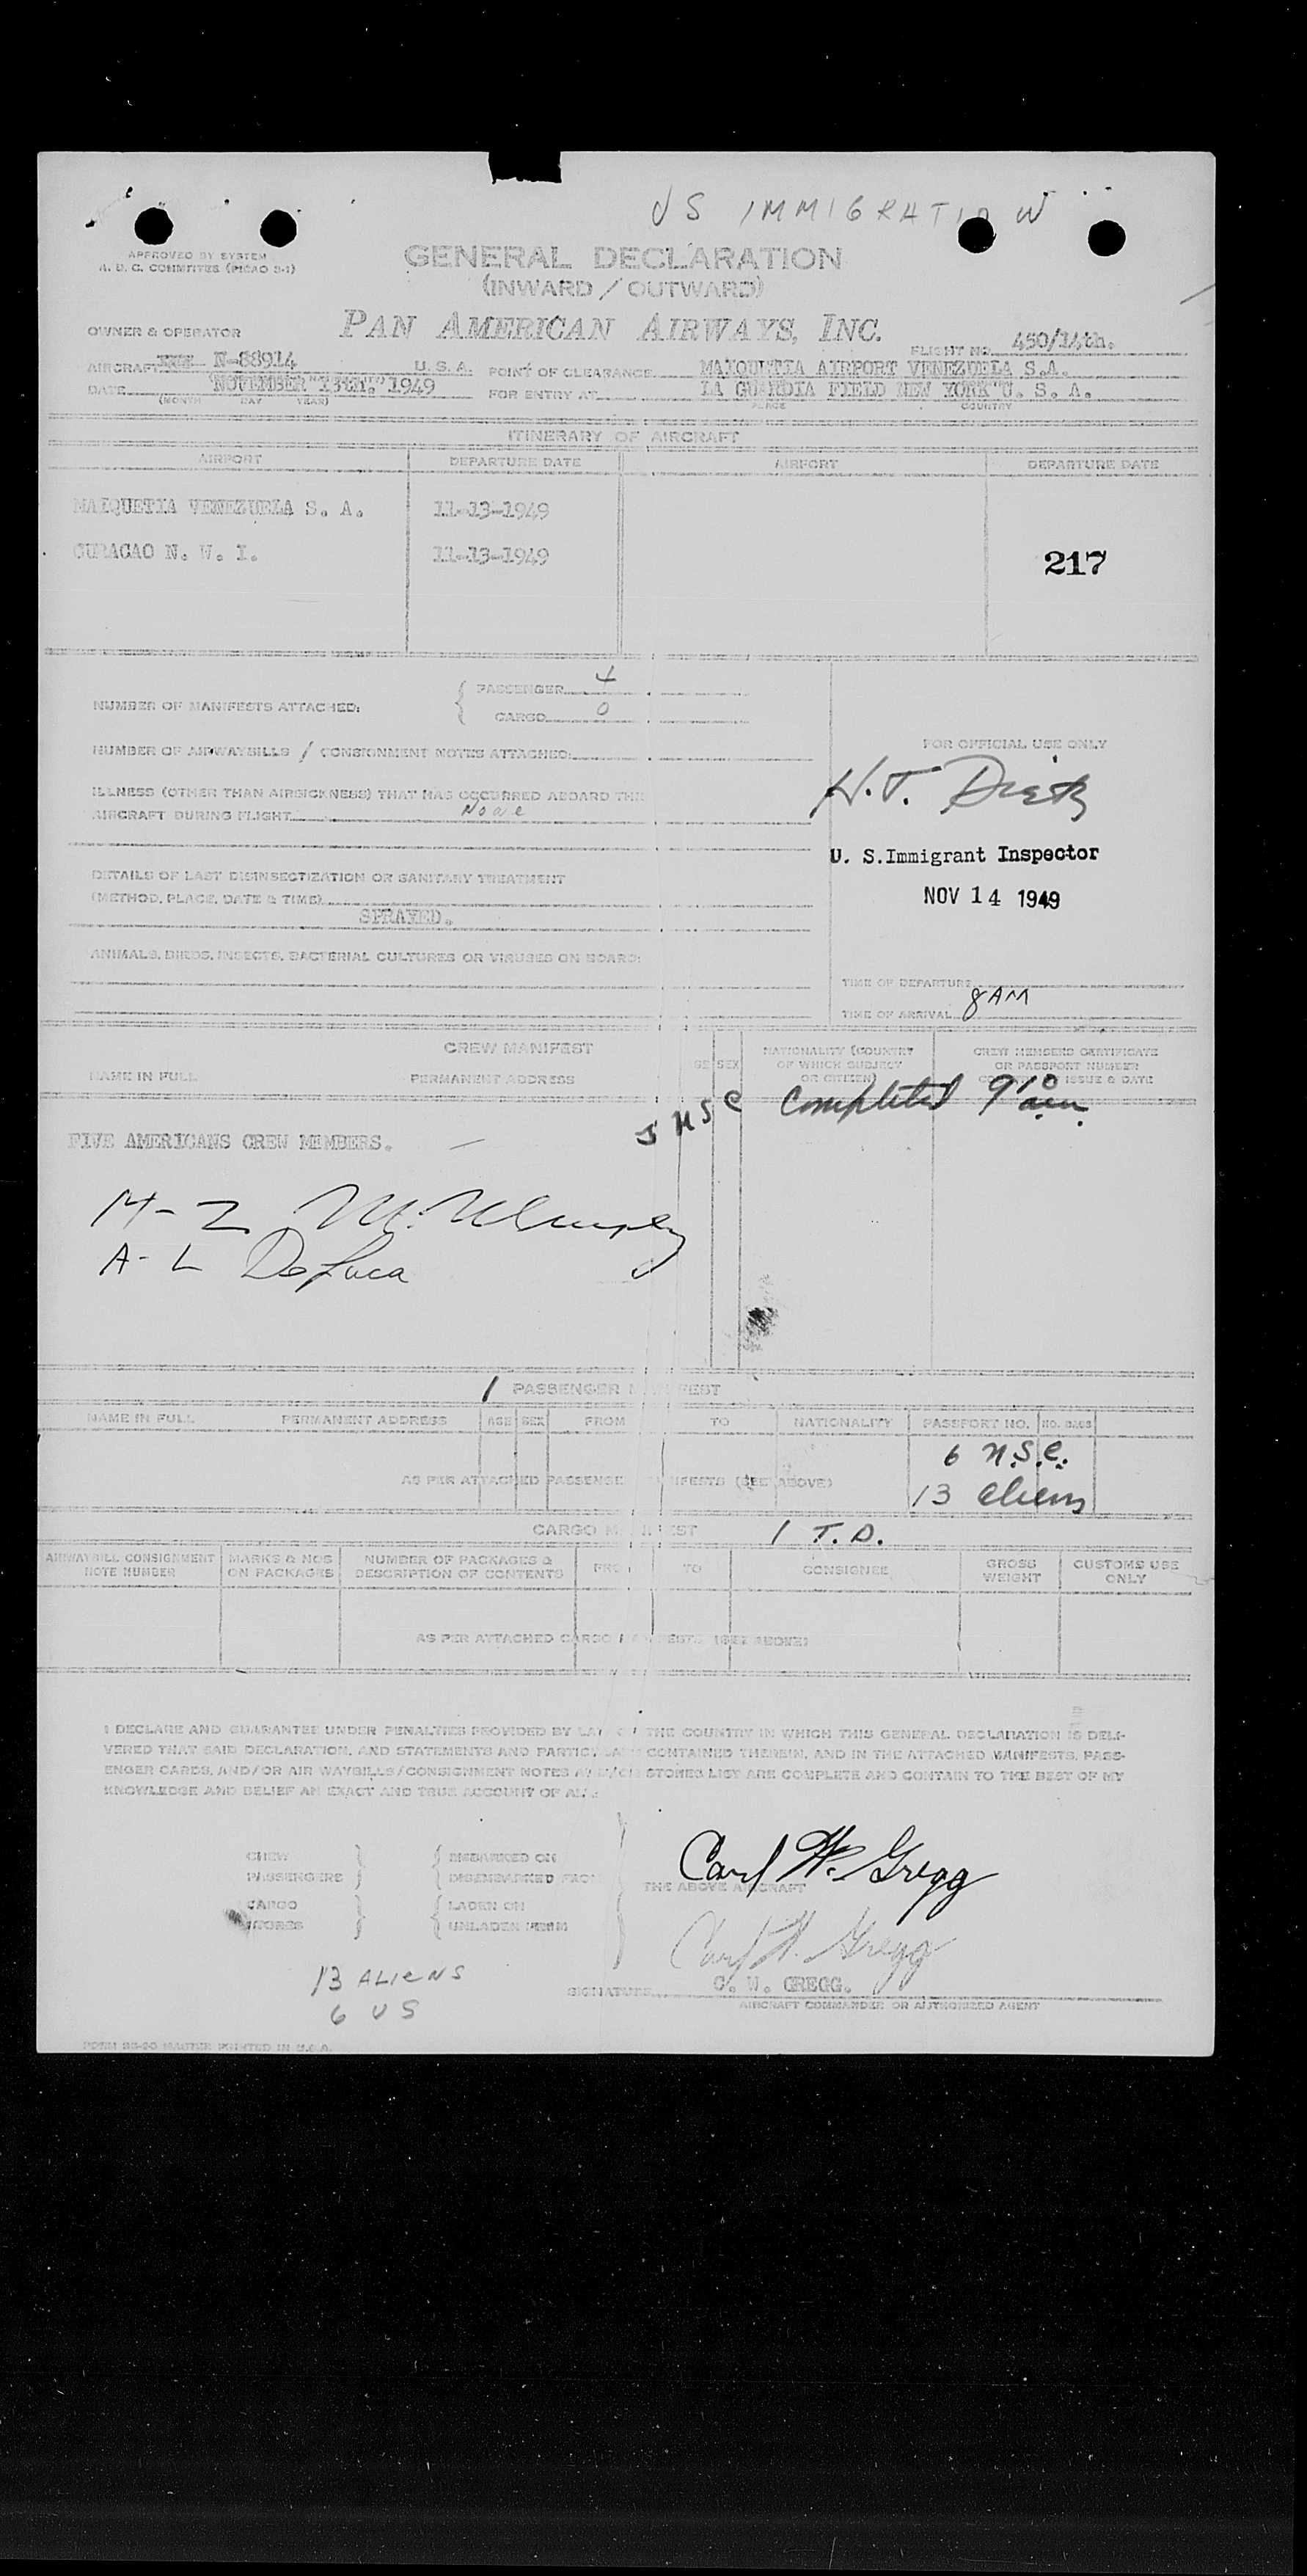 US IMMIGRATION
APPROVED BY SYSTEM
GENERAL DECLARATION
(INWARD / OUTWARD)
OWNER & OPERATOR
PAN AMERICAN AIRWAYS, INC.
FLIGHT NO. 450/14th.
AIRCRAFT N-88914 U. S. A.
POINT OF CLEARANCE MAIQUETIA AIRPORT VENEZUELA S.A.
DATE NOVEMBER "13th." 1949
FOR ENTRY AT LA GUARDIA FIELD NEW YORK U. S. A.
(MONTH DAY YEAR)
PLACE COUNTRY
ITINERARY OF AIRCRAFT
AIRPORT DEPARTURE DATE AIRPORT DEPARTURE DATE
MAIQUETIA VENEZUELA S. A. 11-13-1949
CURACAO N. W. I. 11-13-1949
217
NUMBER OF MANIFESTS ATTACHED:
PASSENGER 4
CARGO 0
NUMBER OF AIRWAYBILLS / CONSIGNMENT NOTES ATTACHED:
FOR OFFICIAL USE ONLY
H.J. Dietz
ILLNESS (OTHER THAN AIRSICKNESS) THAT HAS OCCURRED ABOARD THE
AIRCRAFT DURING FLIGHT None
U. S. Immigrant Inspector
NOV 14 1949
DETAILS OF LAST DISINSECTIZATION OR SANITARY TREATMENT
(METHOD, PLACE, DATE & TIME)
SPRAYED.
ANIMALS, BIRDS, INSECTS, BACTERIAL CULTURES OR VIRUSES ON BOARD:
TIME OF DEPARTURE
TIME OF ARRIVAL 8 AM
CREW MANIFEST
NAME IN FULL PERMANENT ADDRESS SEX
NATIONALITY (COUNTRY
OF WHICH SUBJECT
OR CITIZEN)
CREW MEMBERS CERTIFICATE
OR PASSPORT NUMBER
ISSUE & DATE
5 USC Completed
FIVE AMERICANS CREW MEMBERS.
A-L DeLuca
1 PASSENGER MANIFEST
NAME IN FULL PERMANENT ADDRESS AGE SEX FROM TO NATIONALITY PASSPORT NO. NO. BAGS
6 U.S.C.
AS PER ATTACHED PASSENGER MANIFESTS (SEE ABOVE)
13 aliens
CARGO MANIFEST 1 T.D.
AIRWAYBILL CONSIGNMENT
NOTE NUMBER
MARKS & NOS
ON PACKAGES
NUMBER OF PACKAGES &
DESCRIPTION OF CONTENTS
FROM TO CONSIGNEE
GROSS
WEIGHT
CUSTOMS USE
ONLY
AS PER ATTACHED CARGO MANIFESTS (SEE ABOVE)
I DECLARE AND GUARANTEE UNDER PENALTIES PROVIDED BY LAW OF THE COUNTRY IN WHICH THIS GENERAL DECLARATION IS DELI-
VERED THAT SAID DECLARATION, AND STATEMENTS AND PARTICULARS CONTAINED THEREIN, AND IN THE ATTACHED MANIFESTS, PASS-
ENGER CARDS, AND/OR AIR WAYBILLS/CONSIGNMENT NOTES AND/OR STORES LIST ARE COMPLETE AND CONTAIN TO THE BEST OF MY
KNOWLEDGE AND BELIEF AN EXACT AND TRUE ACCOUNT OF ALL:
CREW EMBARKED ON
PASSENGERS DISEMBARKED FROM
CARGO LADEN ON
STORES UNLADEN FROM
Carl W. Gregg
THE ABOVE AIRCRAFT
Carl W. Gregg
SIGNATURE C. W. GREGG.
AIRCRAFT COMMANDER OR AUTHORIZED AGENT
13 ALIENS
6 US